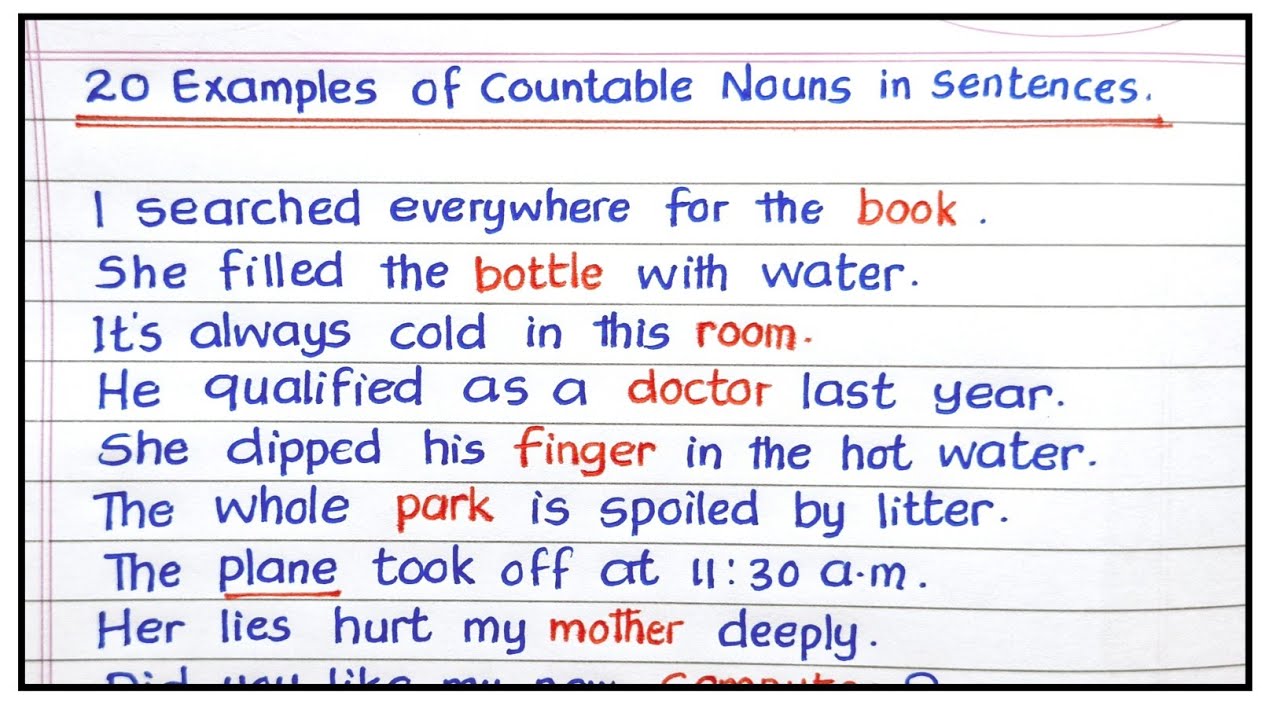 20 Examples of Countable Nouns in Sentences.
I searched everywhere for the book.
She filled the bottle with water.
It's always cold in this room.
He qualified as a doctor last year.
She dipped his finger in the hot water.
The whole park is spoiled by litter.
The plane took off at 11:30 a.m.
Her lies hurt my mother deeply.
Did you like my new computer?